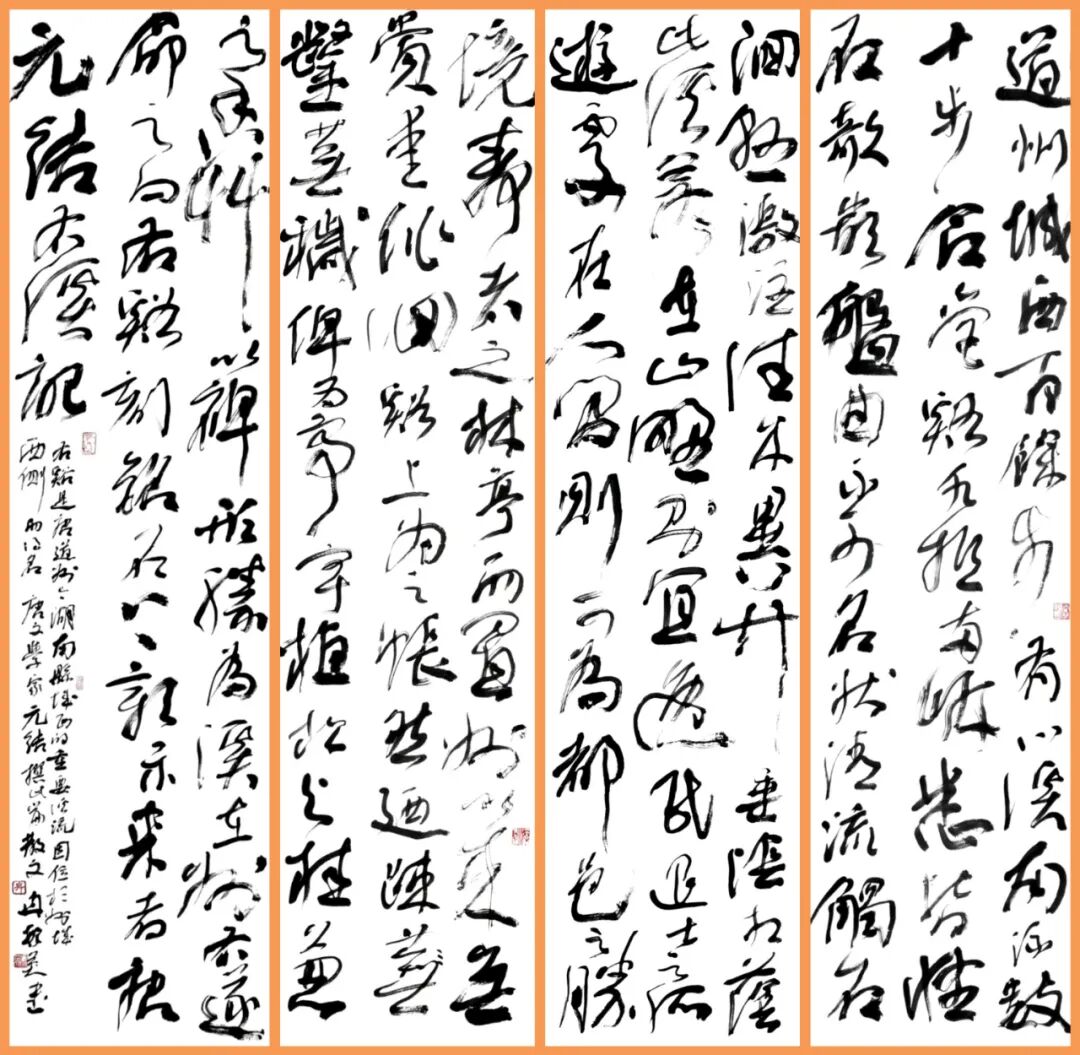 道州城西百餘步有小溪南流數
十步合營谿水抵兩岸悉皆怪
石欹嵌盤曲不可名狀清流觸石
洄懸激注佳木異竹垂陰相蔭
此溪若在山野則宜逸民退士之所
遊處在人間則可為都邑之勝
境靜者之林亭而置州以來無
賞愛徘徊谿上為之悵然迺疎蕪
鑿蕪穢俾為亭宇植松與桂兼
之香艸以裨形勝為溪在州右遂
命之曰右谿刻銘石上彰示來者唐
元結右溪記
右谿是唐道州今湖南縣城西的重要溪流因位於州城
西側而得名唐文學家元結撰此篇散文書